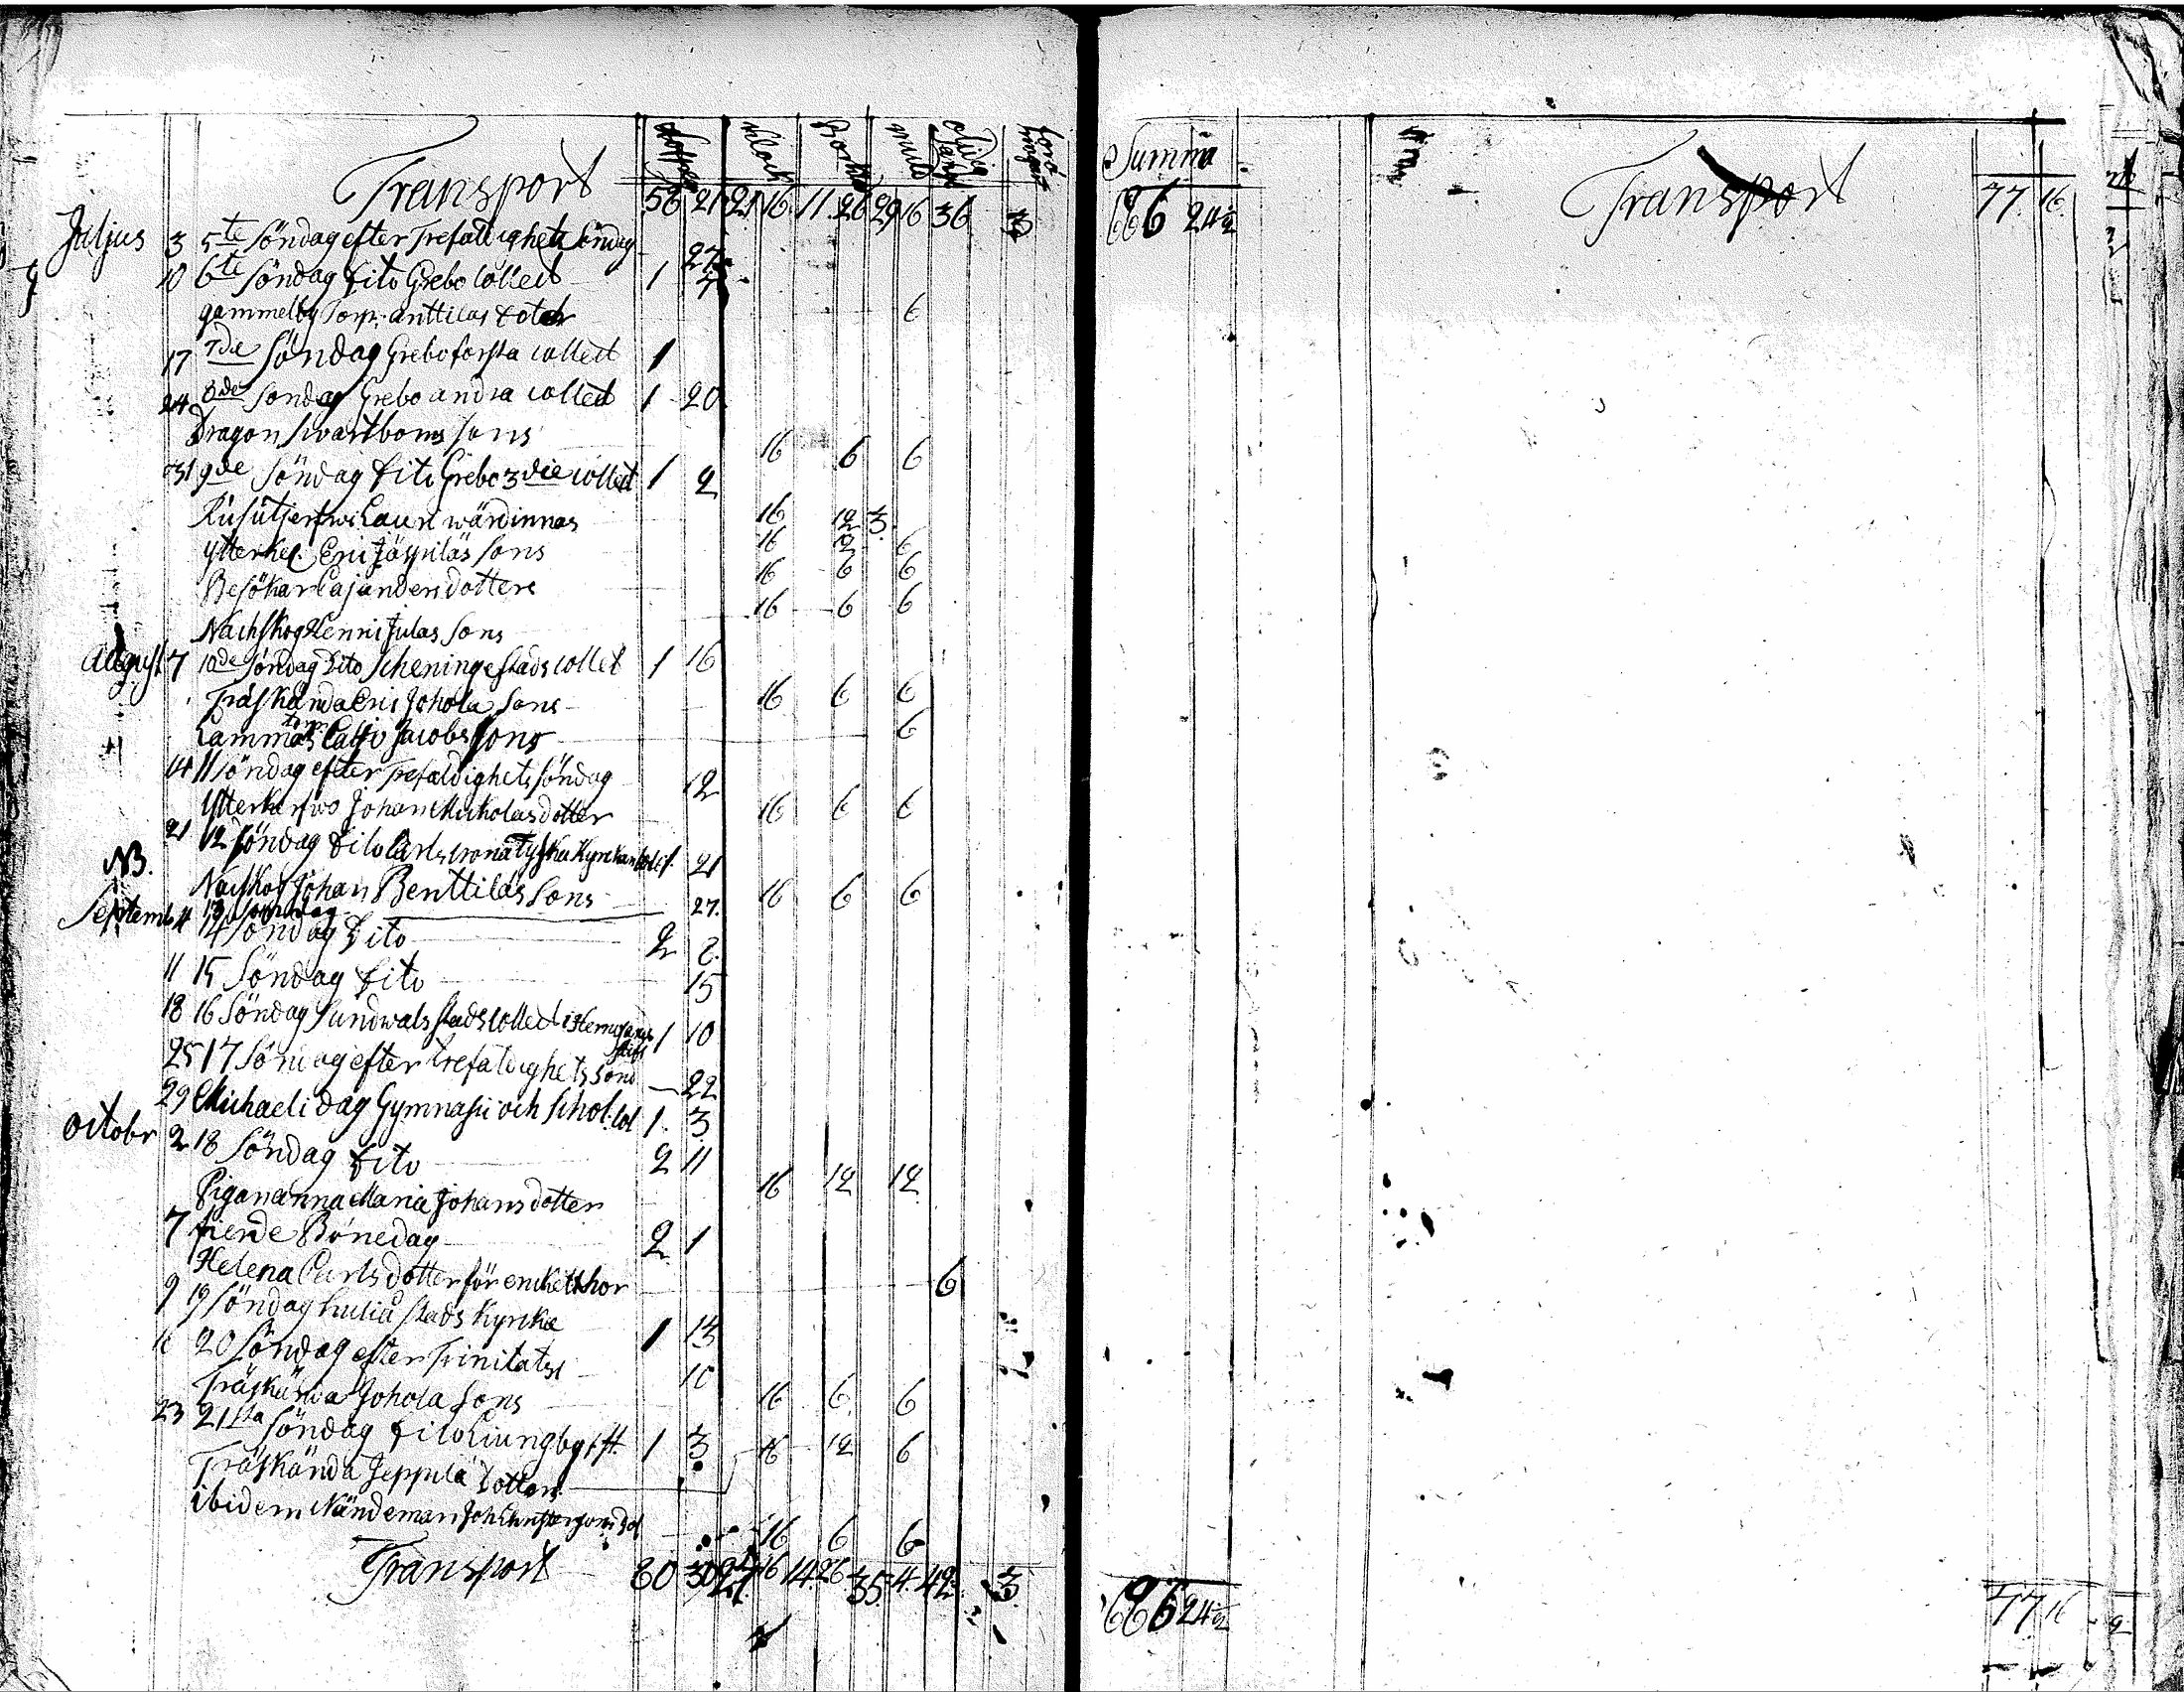 Klock Summa
Transport 56 21 21 16 11 26 29 16 36 686 24½ Transport 77 16
Julius 3 5te Söndag efter Trefaldighets Söndag 27
10 6te Söndag dito Grebo collect 1 7
gammelby Torp. anttilas doter 6
17 7de Söndag Grebo första collect 1
24 8de Söndag Grebo andra collect 1 20
Dragon Svartboms Sons 16 6 6
31 9de Söndag dito Grebo 3die collect 1 2
Lauri wärdinnas 16 12 3
Ytterker Eric Sons 16 12 6
Besökar Cajanders dotters 16 6 6
Nachskog Henni Julas Sons 16 6 6
August 7 10de Söndag Dito Scheninge stads collet 1 16
Träskända Eric Johola Sons 16 6 6
Jacobs Sons 6
14 11 Söndag efter Trefaldighets Söndag 12
Ytterkerfwo Johan Mickolas dotter 16 6 6
21 12 Söndag dito Carlscrona Tyska Kyrckans Colect. 21
NB.
Nachskog Johan Benttiläs Sons 16 6 6
13 Söndag 27.
Septemb 4 14 Söndag Dito 2 2.
11 15 Söndag dito 15
18 16 Söndag Sundwals stads collect i Hernösands stift 1 10
25 17 Söndag efter trefaldighets Sönd 22
29 Michaeli dag Gymnasii och Schol. col 1. 3
Octobr 2 18 Söndag dito 2 11
Pigan anna Maria Johans dotter 16 12 12
7 fierde Bönedag 2 1
Helena Carls dotter för enckelt hor 6
9 19 Söndag Luleå stads Kyrcka 1 13
16 20 Söndag efter Trinitatis 10
Träskända Johola Sons 16 6 6
23 21sta Söndag dito Liungby 1 3 16 12 6
Träskända Jeppilä Dotter
ibidem Nändeman 16 6 6
Transport 80 30 24 16 14 26 35 4 42 3 686 24½ 77 16